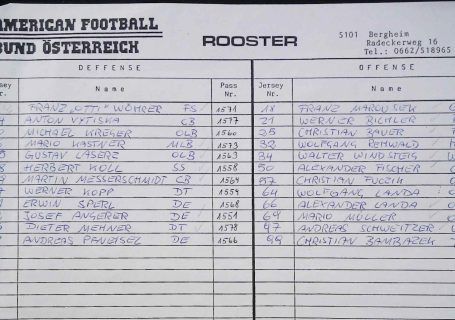 AMERICAN FOOTBALL
BUND ÖSTERREICH
ROOSTER
5101 Bergheim
Radeckerweg 16
Tel.: 0662/518965
DEFFENSE
OFFENSE
Jersey Nr. Name Pass Nr. Jersey Nr. Name
FRANZ "OTTI" WÖHRER FS 1571 18 FRANZ MAROUSEK
ANTON VYTISKA CB 1577 21 WERNER RICHLER
MICHAEL KREGER OLB 1560 25 CHRISTIAN BAUER
MARIO KASTNER MLB 1573 32 WOLFGANG REHWALD
GUSTAV OLB 1563 34 WALTER WINDSTEIG
HERBERT KOLL SS 1558 50 ALEXANDER FISCHER
MARTIN MESSERSCHMIDT CB 1564 57 CHRISTIAN
WERNER KOPP DT 1554 64 WOLFGANG LANDA
ERWIN SPERL DE 1568 66 ALEXANDER LANDA
JOSEF ANGERER DE 1551 69 MARIO MÜLLER
DIETER MEHNER DT 1578 97 ANDREAS SCHWEITZER
ANDREAS DE 1566 99 CHRISTIAN BAMBAZEK